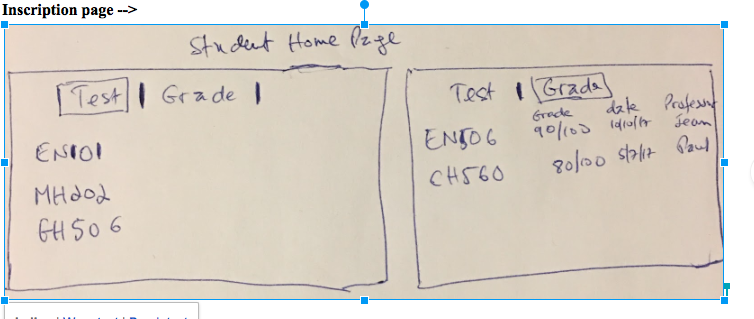 Inscription page -->
Student Home Page
Test | Grade |
EN101
MH202
GH506
Test | Grade
Grade date Professor
EN506 90/100 Jeam
CH560 80/100 5/7/17 Paul